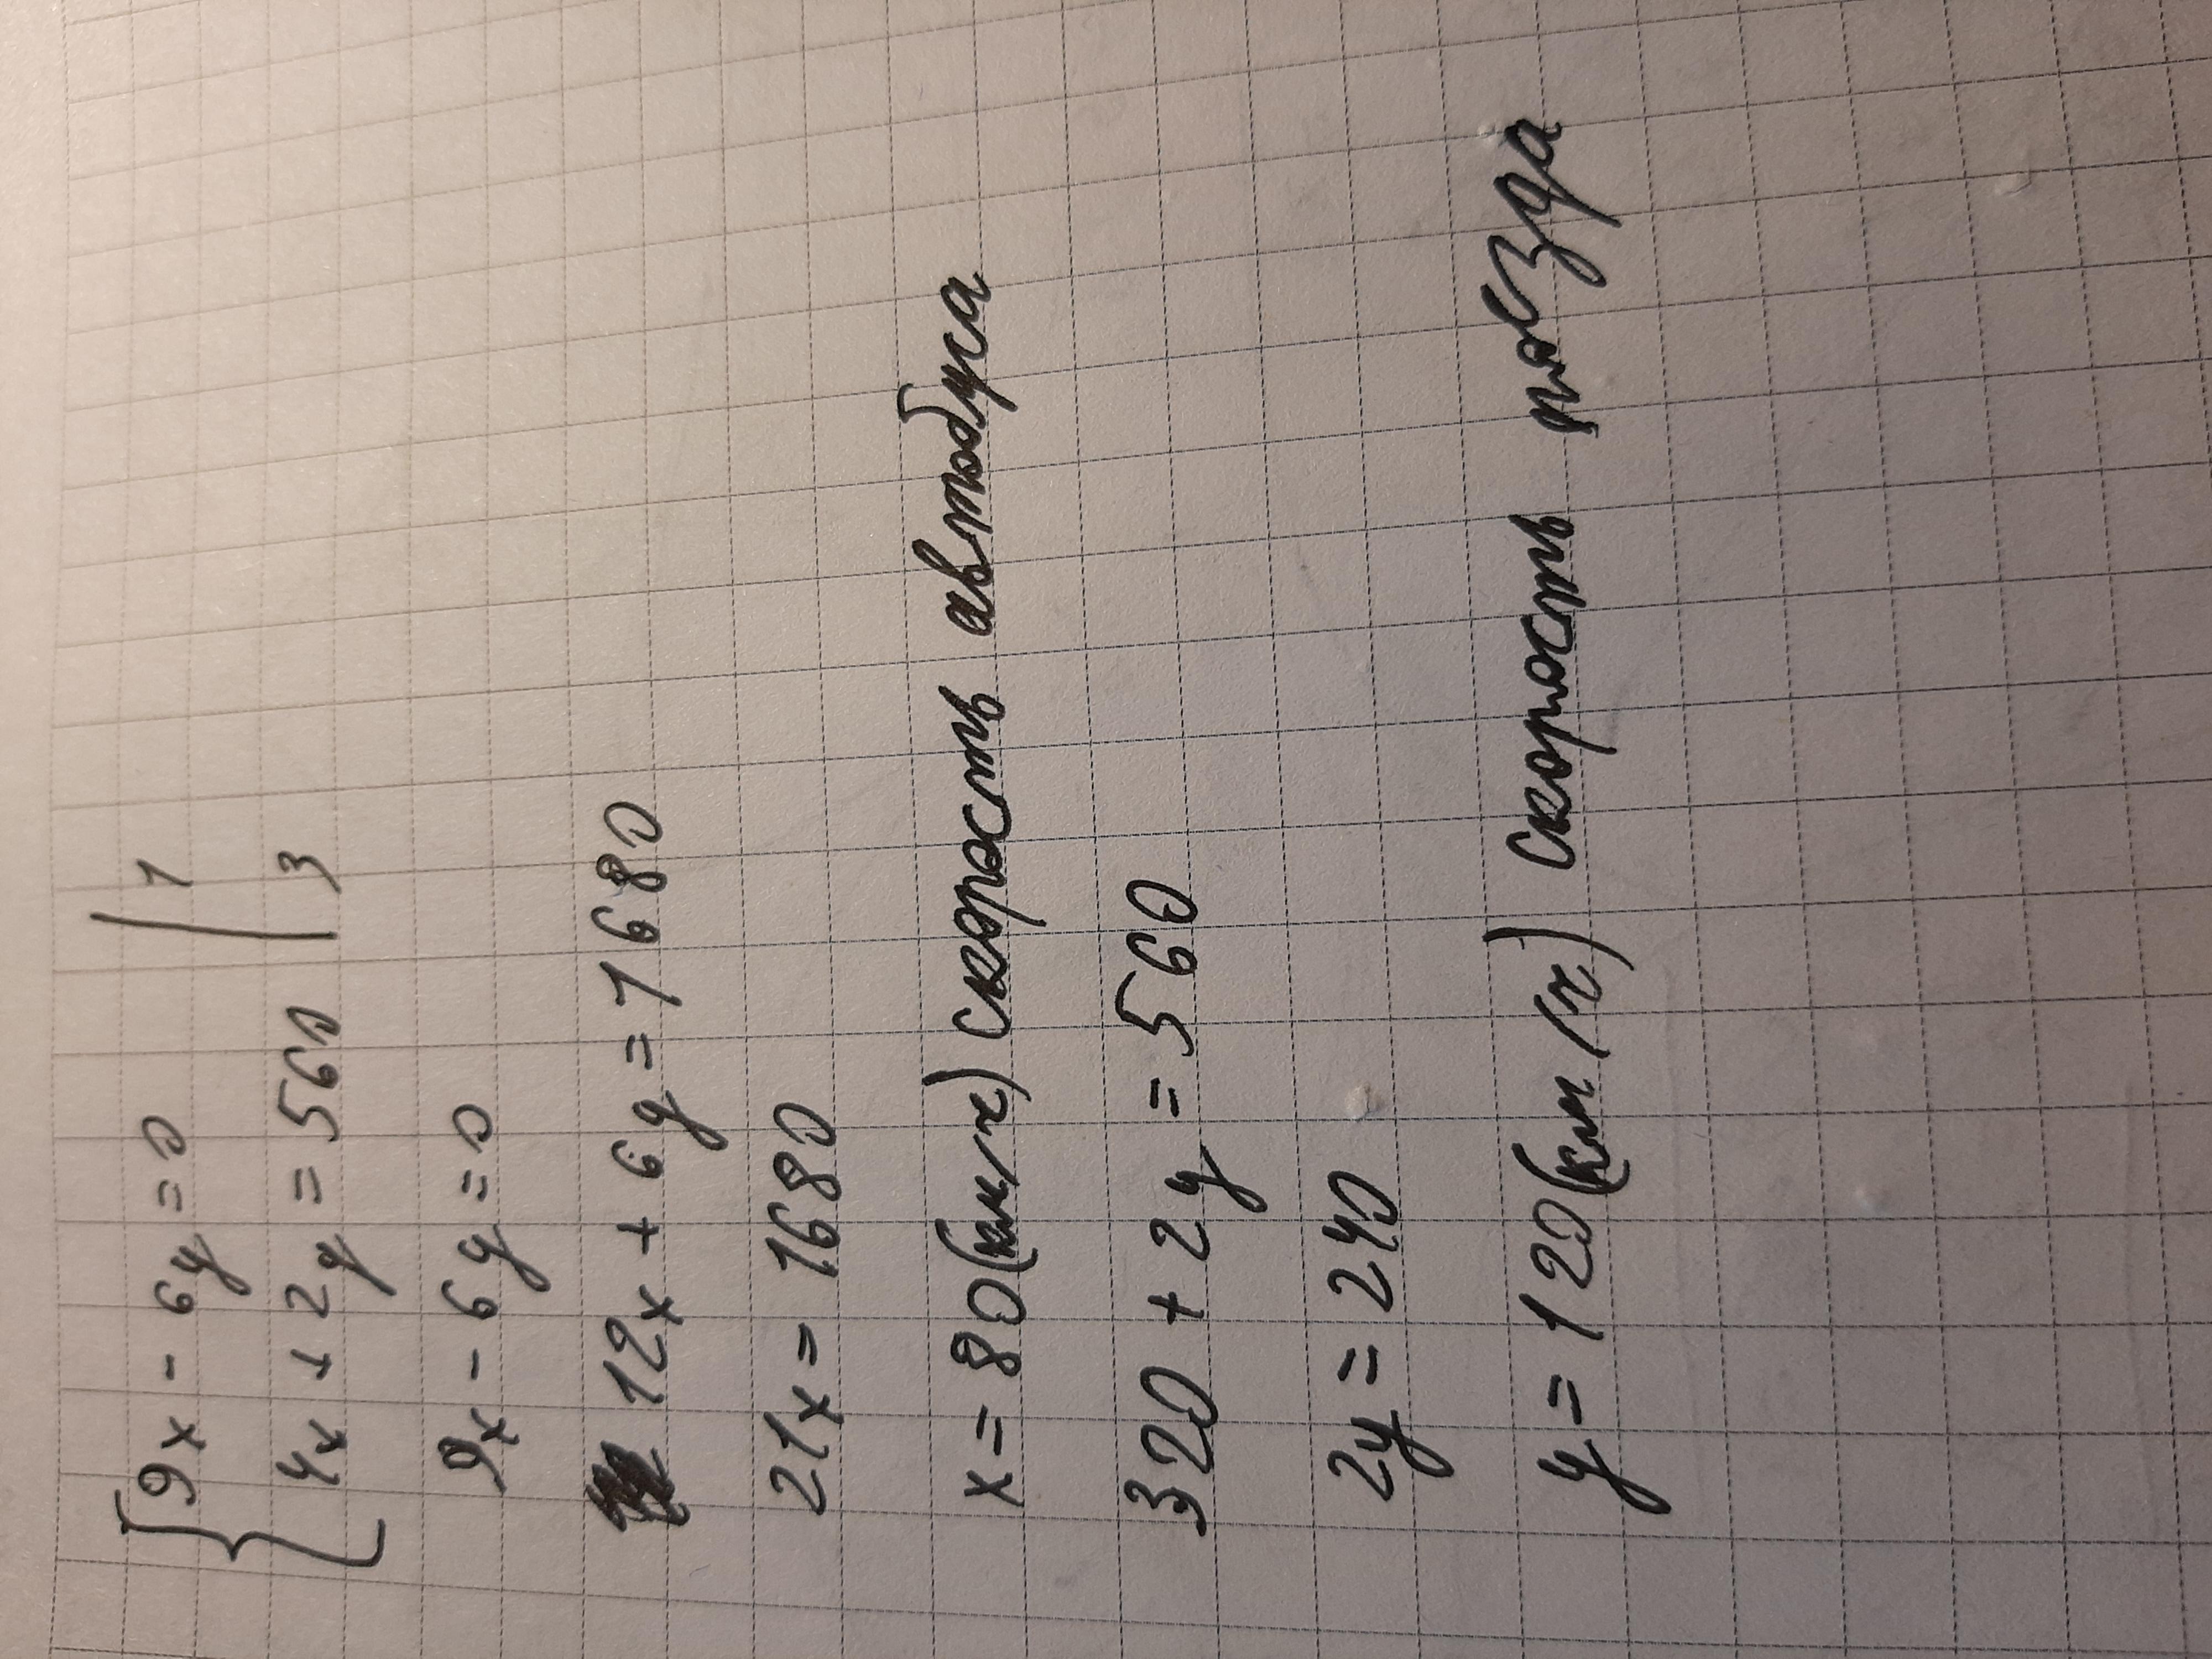 { 9x - 6y = 0 | 1
4x + 2y = 560 | 3
9x - 6y = 0
12x + 6y = 1680
21x = 1680
x = 80 (км/ч) скорость автобуса
320 + 2y = 560
2y = 240
y = 120 (км/ч) скорость поезда